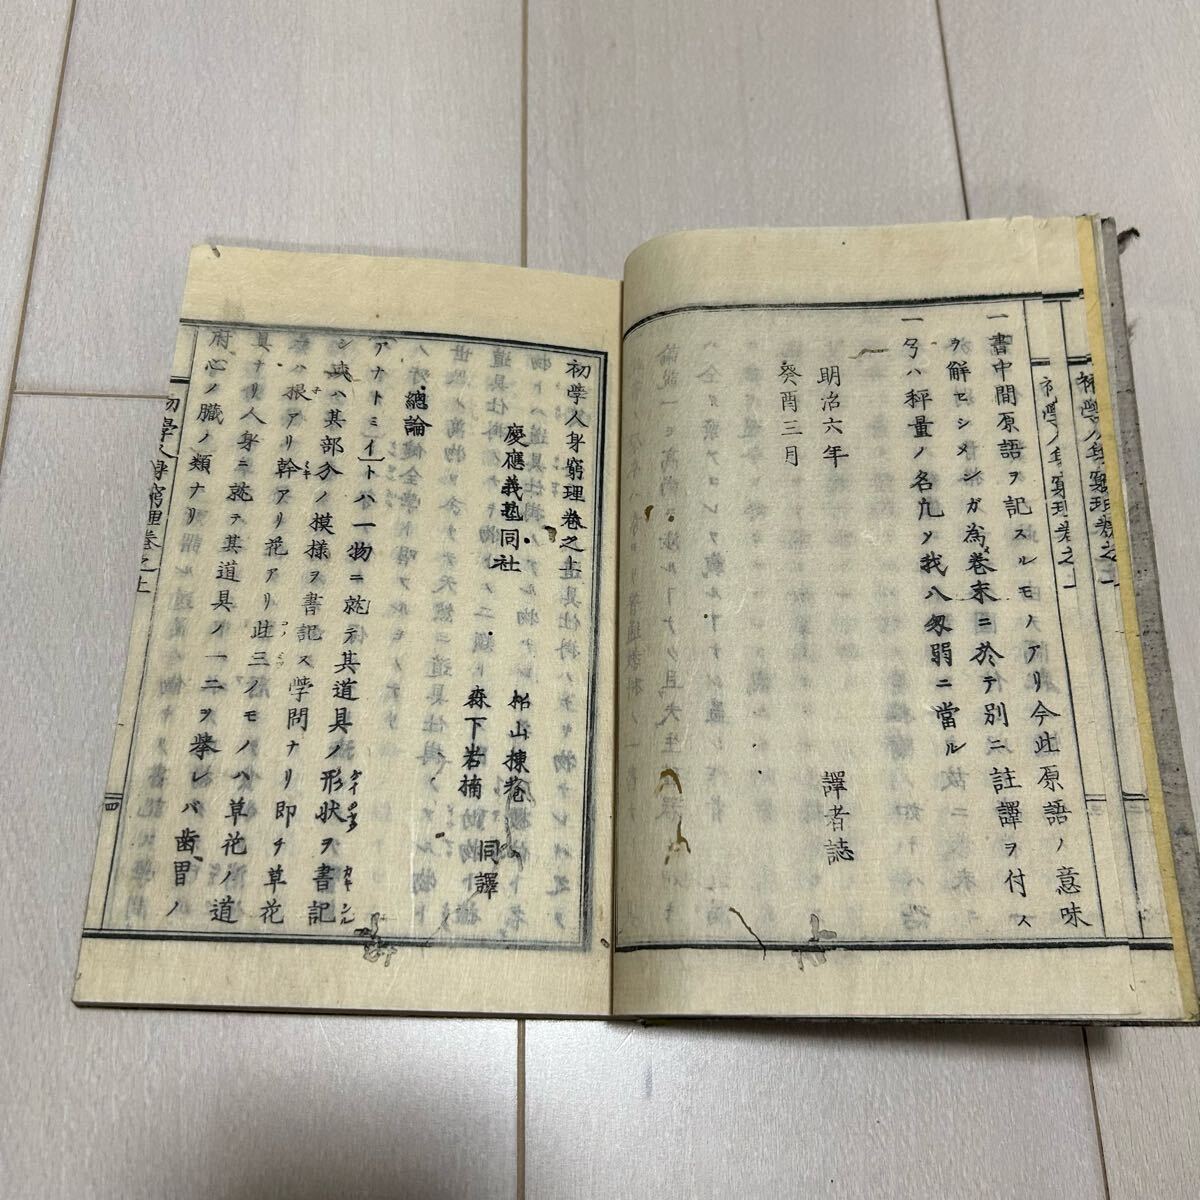 一書中間原語ヲ記スルモノアリ今此原語ノ意味
ヲ解セシメンガ為メ巻末ニ於テ別ニ註譯ヲ付ス
一ハ秤量ノ名九ソ我八匁弱ニ當ル
明治六年
癸酉三月
譯者誌
初學人身窮理巻之上
慶應義塾同社
松山棟菴
森下岩楠
同譯
總論
アナトミイトハ一物ニ就テ其道具ノ形状ヲ書記
シ或ハ其部分ノ摸様ヲ書記ス學問ナリ即チ草花
ハ根アリ幹アリ花アリ此三ノモノハ草花ノ道
具ナリ人身ニ就テ其道具ノ一二ヲ擧レバ歯胃ノ
府心ノ臓ノ類ナリ
初學人身窮理巻之上
四